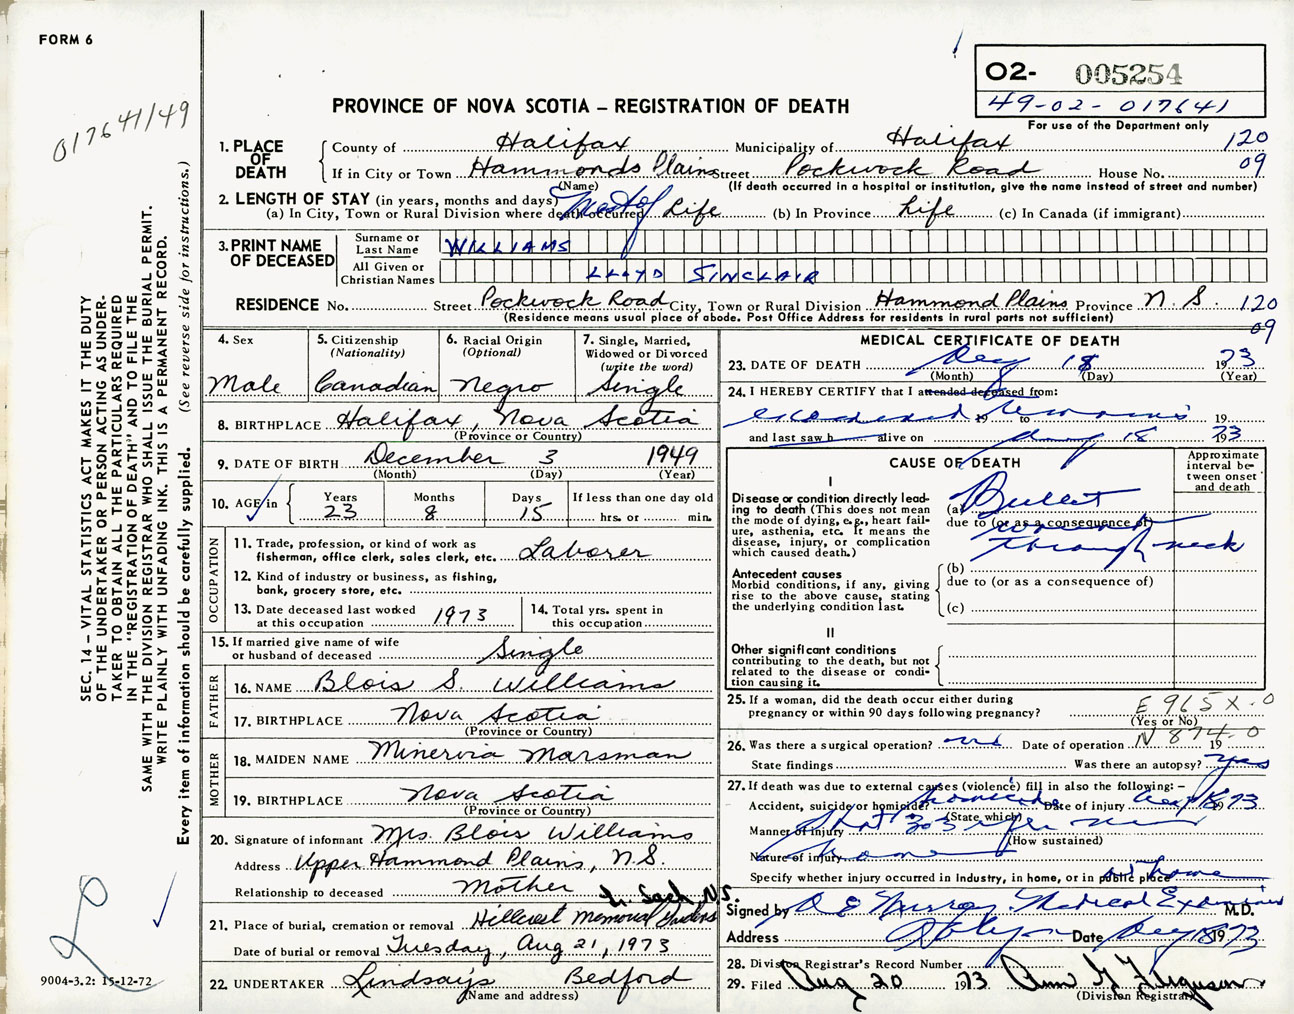 FORM 6
O2- 005254
49-02-017641
For use of the Department only
017641/49
PROVINCE OF NOVA SCOTIA – REGISTRATION OF DEATH
1. PLACE OF DEATH
County of Halifax Municipality of Halifax 120
If in City or Town Hammonds Plains Street Pockwock Road House No. 09
(Name) (If death occurred in a hospital or institution, give the name instead of street and number)
2. LENGTH OF STAY (in years, months and days)
(a) In City, Town or Rural Division where death occurred Most of Life (b) In Province Life (c) In Canada (if immigrant)
3. PRINT NAME OF DECEASED
Surname or Last Name WILLIAMS
All Given or Christian Names LLOYD SINCLAIR
RESIDENCE No. Street Pockwock Road City, Town or Rural Division Hammond Plains Province N.S. 120
(Residence means usual place of abode. Post Office Address for residents in rural parts not sufficient) 09
4. Sex Male
5. Citizenship (Nationality) Canadian
6. Racial Origin (Optional) Negro
7. Single, Married, Widowed or Divorced (write the word) Single
8. BIRTHPLACE Halifax, Nova Scotia
(Province or Country)
9. DATE OF BIRTH December 3 1949
(Month) (Day) (Year)
10. AGE in Years 23 Months 8 Days 15 If less than one day old hrs. or min.
OCCUPATION
11. Trade, profession, or kind of work as fisherman, office clerk, sales clerk, etc. Laborer
12. Kind of industry or business, as fishing, bank, grocery store, etc.
13. Date deceased last worked at this occupation 1973
14. Total yrs. spent in this occupation
15. If married give name of wife or husband of deceased Single
FATHER
16. NAME Blois S. Williams
17. BIRTHPLACE Nova Scotia
(Province or Country)
MOTHER
18. MAIDEN NAME Minervia Marsman
19. BIRTHPLACE Nova Scotia
(Province or Country)
20. Signature of informant Mrs. Blois Williams
Address Upper Hammond Plains, N.S.
Relationship to deceased Mother
L. Sack, N.S.
21. Place of burial, cremation or removal Hillcrest Memorial Gardens
Date of burial or removal Tuesday, Aug 21, 1973
22. UNDERTAKER Lindsay's Bedford
(Name and address)
MEDICAL CERTIFICATE OF DEATH
23. DATE OF DEATH Aug 18 1973
(Month) (Day) (Year)
24. I HEREBY CERTIFY that I attended deceased from:
examined remains 19 to 19
and last saw h alive on Aug 18 1973
CAUSE OF DEATH
Approximate interval between onset and death
I
Disease or condition directly leading to death (This does not mean the mode of dying, e.g., heart failure, asthenia, etc. It means the disease, injury, or complication which caused death.)
(a) Bullet
due to (or as a consequence of)
wound
through neck
Antecedent causes
Morbid conditions, if any, giving rise to the above cause, stating the underlying condition last.
(b)
due to (or as a consequence of)
(c)
II
Other significant conditions
contributing to the death, but not related to the disease or condition causing it.
25. If a woman, did the death occur either during pregnancy or within 90 days following pregnancy? E 965X.0
(Yes or No)
N 874-0
26. Was there a surgical operation? no Date of operation 19
State findings Was there an autopsy? yes
27. If death was due to external causes (violence) fill in also the following: –
Accident, suicide or homicide? homicide Date of injury Aug 18 1973
(State which)
Manner of injury Shot 303 rifle
(How sustained)
Nature of injury
Specify whether injury occurred in Industry, in home, or in public place at home
Signed by D E Murray. Medical Examiner M.D.
Address Date Aug 18 1973
28. Division Registrar's Record Number
29. Filed Aug 20 1973 Ann G Ferguson
(Division Registrar)
SEC. 14 – VITAL STATISTICS ACT MAKES IT THE DUTY
OF THE UNDERTAKER OR PERSON ACTING AS UNDER-
TAKER TO OBTAIN ALL THE PARTICULARS REQUIRED
IN THE "REGISTRATION OF DEATH" AND TO FILE THE
SAME WITH THE DIVISION REGISTRAR WHO SHALL ISSUE THE BURIAL PERMIT.
WRITE PLAINLY WITH UNFADING INK. THIS IS A PERMANENT RECORD.
Every item of information should be carefully supplied. (See reverse side for instructions.)
9004-3.2: 15-12-72